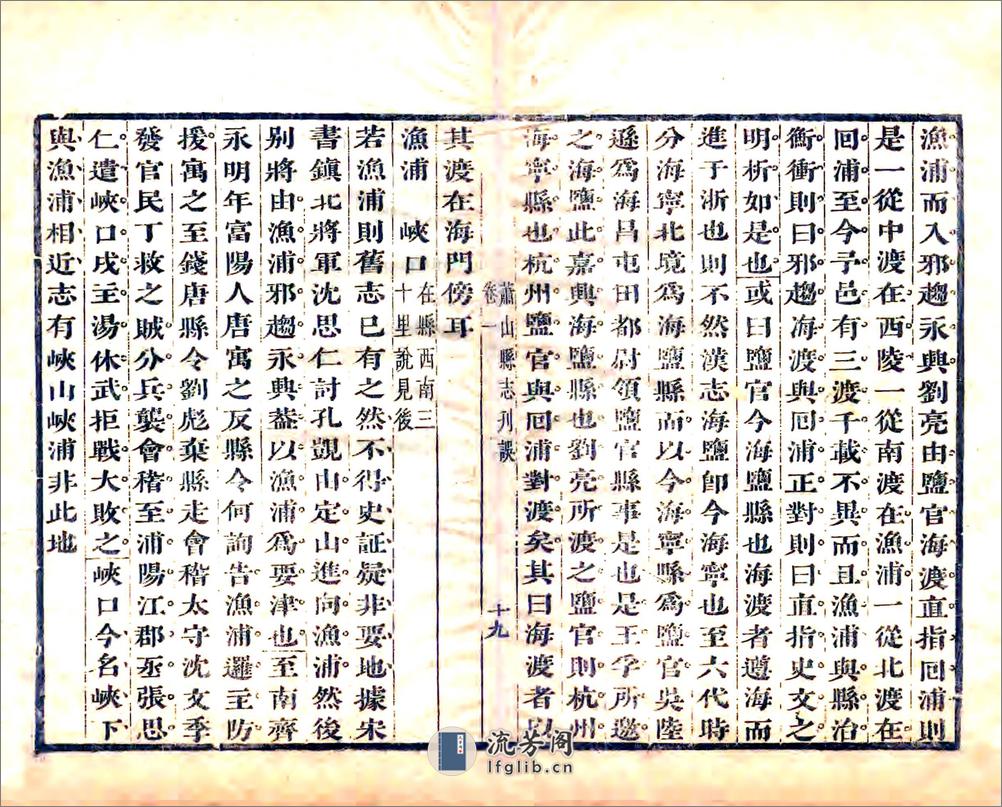 漁浦而入邪趨永興劉亮由鹽官海渡直指囘浦則
是一從中渡在西陵一從南渡在漁浦一從北渡在
囘浦至今予邑有三渡千載不異而且漁浦與縣治
衝衝則曰邪趨海渡與囘浦正對則曰直指史文之
明析如是也或曰鹽官今海鹽縣也海渡者遵海而
進于浙也則不然漢志海鹽卽今海寧也至六代時
分海寧北境爲海鹽縣而以今海寧縣爲鹽官吳陸
遜爲海昌屯田都尉領鹽官縣事是也是王孚所邀
之海鹽此嘉興海鹽縣也劉亮所渡之鹽官則杭州
海寧縣也杭州鹽官與囘浦對渡矣其曰海渡者以
蕭山縣志刋誤
卷一
十九
其渡在海門傍耳
漁浦　峽口在縣西南三十里說見後
若漁浦則舊志已有之然不得史証疑非要地據宋
書鎮北將軍沈思仁討孔覬由定山進向漁浦然後
別將由漁浦邪趨永興葢以漁浦爲要津也至南齊
永明年富陽人唐寓之反縣令何詢告漁浦邏主防
援寓之至錢唐縣令劉彪棄縣走會稽太守沈文季
發官民丁救之賊分兵襲會稽至浦陽江郡丞張思
仁遣峽口戍主湯休武拒戰大敗之峽口今名峽下
與漁浦相近志有峽山峽浦非此地
流芳阁
lfglib.cn